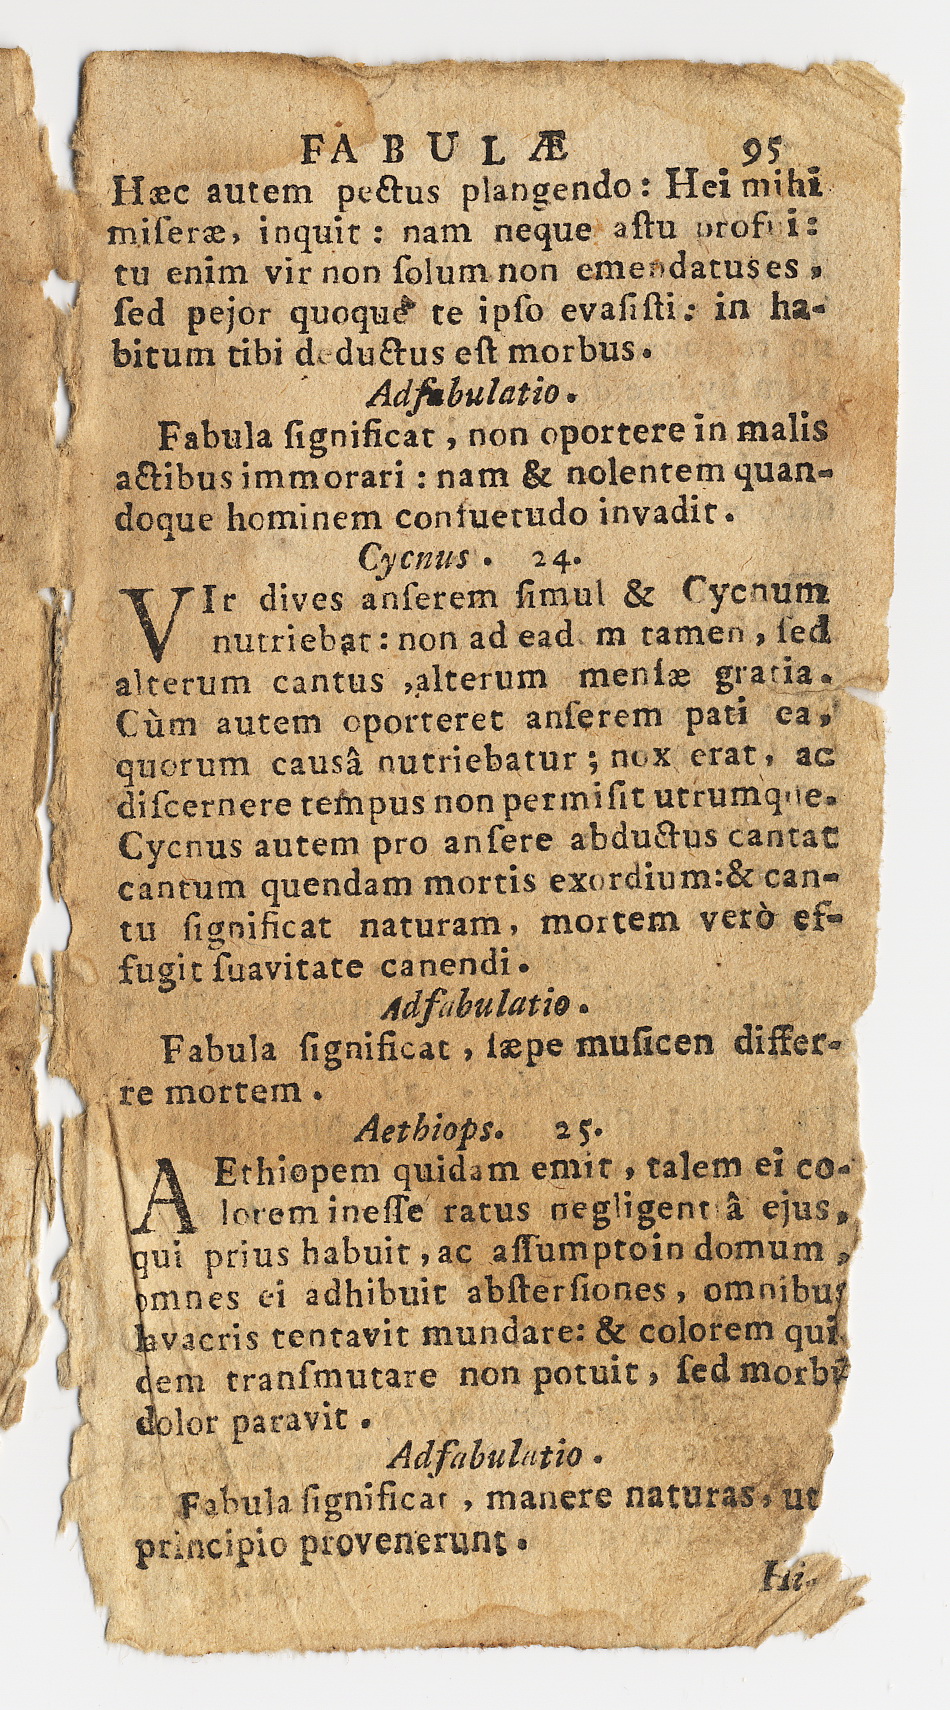 FABULÆ 95
Hæc autem pectus plangendo: Hei mihi
miſeræ, inquit: nam neque aſtu profui:
tu enim vir non ſolum non emendatus es,
ſed pejor quoque te ipſo evaſiſti: in ha-
bitum tibi deductus eſt morbus.
Adfabulatio.
Fabula ſignificat, non oportere in malis
actibus immorari: nam & nolentem quan-
doque hominem conſuetudo invadit.
Cycnus. 24.
VIr dives anſerem ſimul & Cycnum
nutriebat: non ad eadem tamen, ſed
alterum cantus, alterum menſæ gratia.
Cùm autem oporteret anſerem pati ea,
quorum causâ nutriebatur; nox erat, ac
diſcernere tempus non permiſit utrumque.
Cycnus autem pro anſere abductus cantat
cantum quendam mortis exordium: & can-
tu ſignificat naturam, mortem verò ef-
fugit ſuavitate canendi.
Adfabulatio.
Fabula ſignificat, ſæpe muſicen differ-
re mortem.
Aethiops. 25.
AEthiopem quidam emit, talem ei co-
lorem ineſſe ratus negligentiâ ejus,
qui prius habuit, ac aſſumpto in domum,
omnes ei adhibuit abſterſiones, omnibus
lavacris tentavit mundare: & colorem qui
dem tranſmutare non potuit, ſed morbū
dolor paravit.
Adfabulatio.
Fabula ſignificat, manere naturas, ut
principio provenerunt.
Hi-